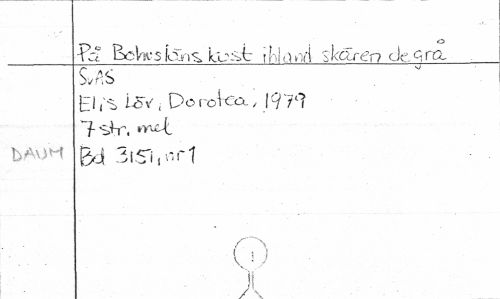 På Bohusläns kust ibland skären de grå
SvAS
Elis Löv, Dorotea, 1979
7 str, mel
DAUM Bd 3151, nr 1